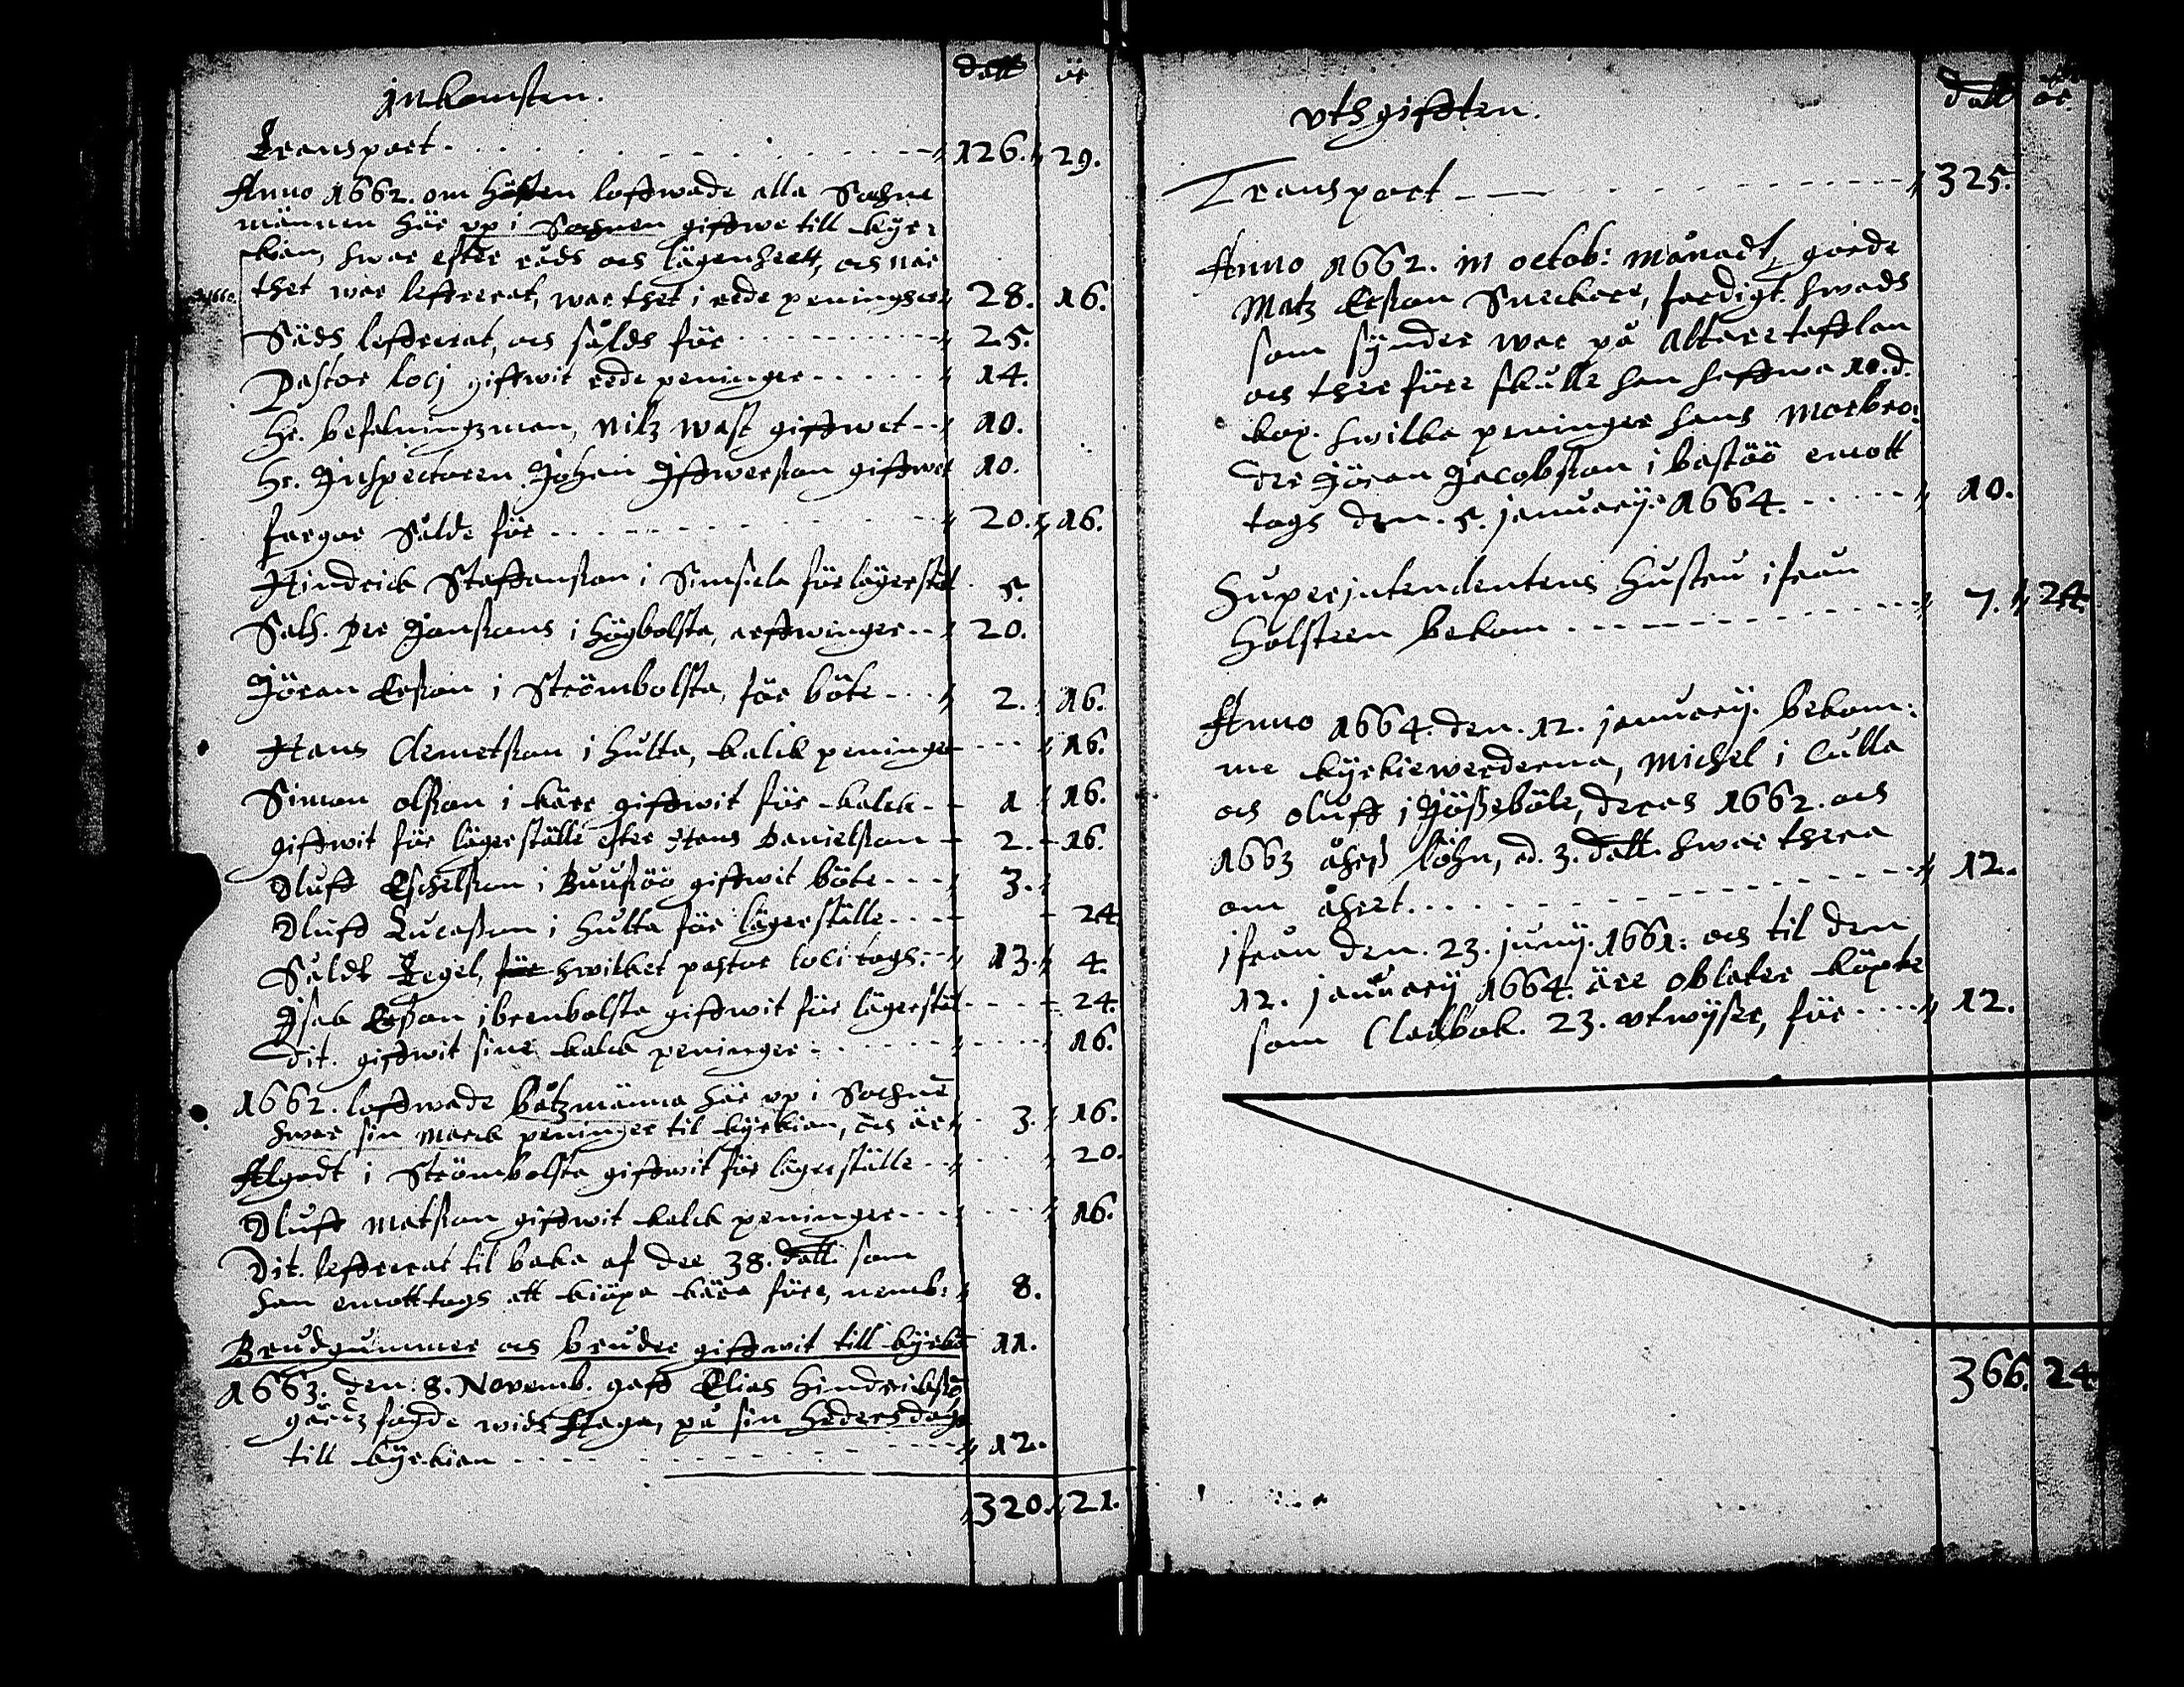 Inkomsten. dall ör
Transport 126. 29.
Anno 1662. om hösten loffwade alla Sochne
männen här vp i Sochnen giffwe till kyr:
kian, hwar efter råds och lägenheet, och när
thet war leffrerat, war thet i rede peningher 28. 16.
Säds leffrerat, och sålds för 25.
Pastor locj giffwit rede peninger 14.
Hr. befalningzman, Nilz wast giffwet 10.
Hr. Inspectoren Johan Iffwersson giffwet 10.
fargor Sålde för 20. 16.
Hindrick Staffansson i Simsala för lägerstäl 5.
Sals. Per Jonssons i Högbolsta, arffwinger 20.
Jöran Ersson i Strömbolsta, för böte 2. 16.
Hans Clemetsson i Hulta, kalck peninger 16.
Simon olsson i kärr giffwit för kalck 1 16.
giffwit för lägerställe efter Hans Danielsson 2. 16.
Oluff Eschelsson i Buussöö giffwit böte 3.
Oluff Lucasson i Hulta för lägerställe 24
Såldt Tegel, för hwilket pastor loci togs 13. 4.
Isak Ersson i brenbolsta giffwit för lägerstäl 24.
Dit. giffwit sine kalck peninger 16.
1662. loffwade båtzmänna här vp i Sochnē
hwar sin marck peninger til kyrkian, och är 3. 16.
Algodt i Strömbolsta giffwit för lägerställe 20.
Oluff Matsson giffwit kalck peninger 16.
Dit. leffrerat til baka af dee 38. dall. som
han emottogs att kiöpa kära före, nemb: 8.
Brudgummer och bruder giffwit till kyrkā 11.
1663. den: 8. Novemb. gaff Elias Hindrickssō
gårdzfogde wids Haga, på sin hedersdags
till kyrkian 12.
320. 21.
vthgifften. dall ör
Transport 325.
Anno 1662. in octob: månadt, giorde
Matz Ersson Snickare, ferdigt hwads
som synder war på altaretafflan
och ther före skulle han haffwa 10. d.
kop. hwilka peninger hans morbro:
der Jöran Jacobsson i bastöö emott
togs den. 5. january: 1664. 10.
Superintendentens hustru ifrån
Holsteen bekom 7. 24
Anno 1664. den. 12. january. bekom:
me kyrkiewerderna, Michel i Culla
och Oluff i Jössebole, deras 1662. och
1663 åhrss löhn, ad. 3. dall. hwar thera
om åhret. 12.
ifrån den. 23. juny. 1661: och til den
12. january 1664. äre oblater köpte
som Cladbok. 23. vtwyser, för 12.
366. 24